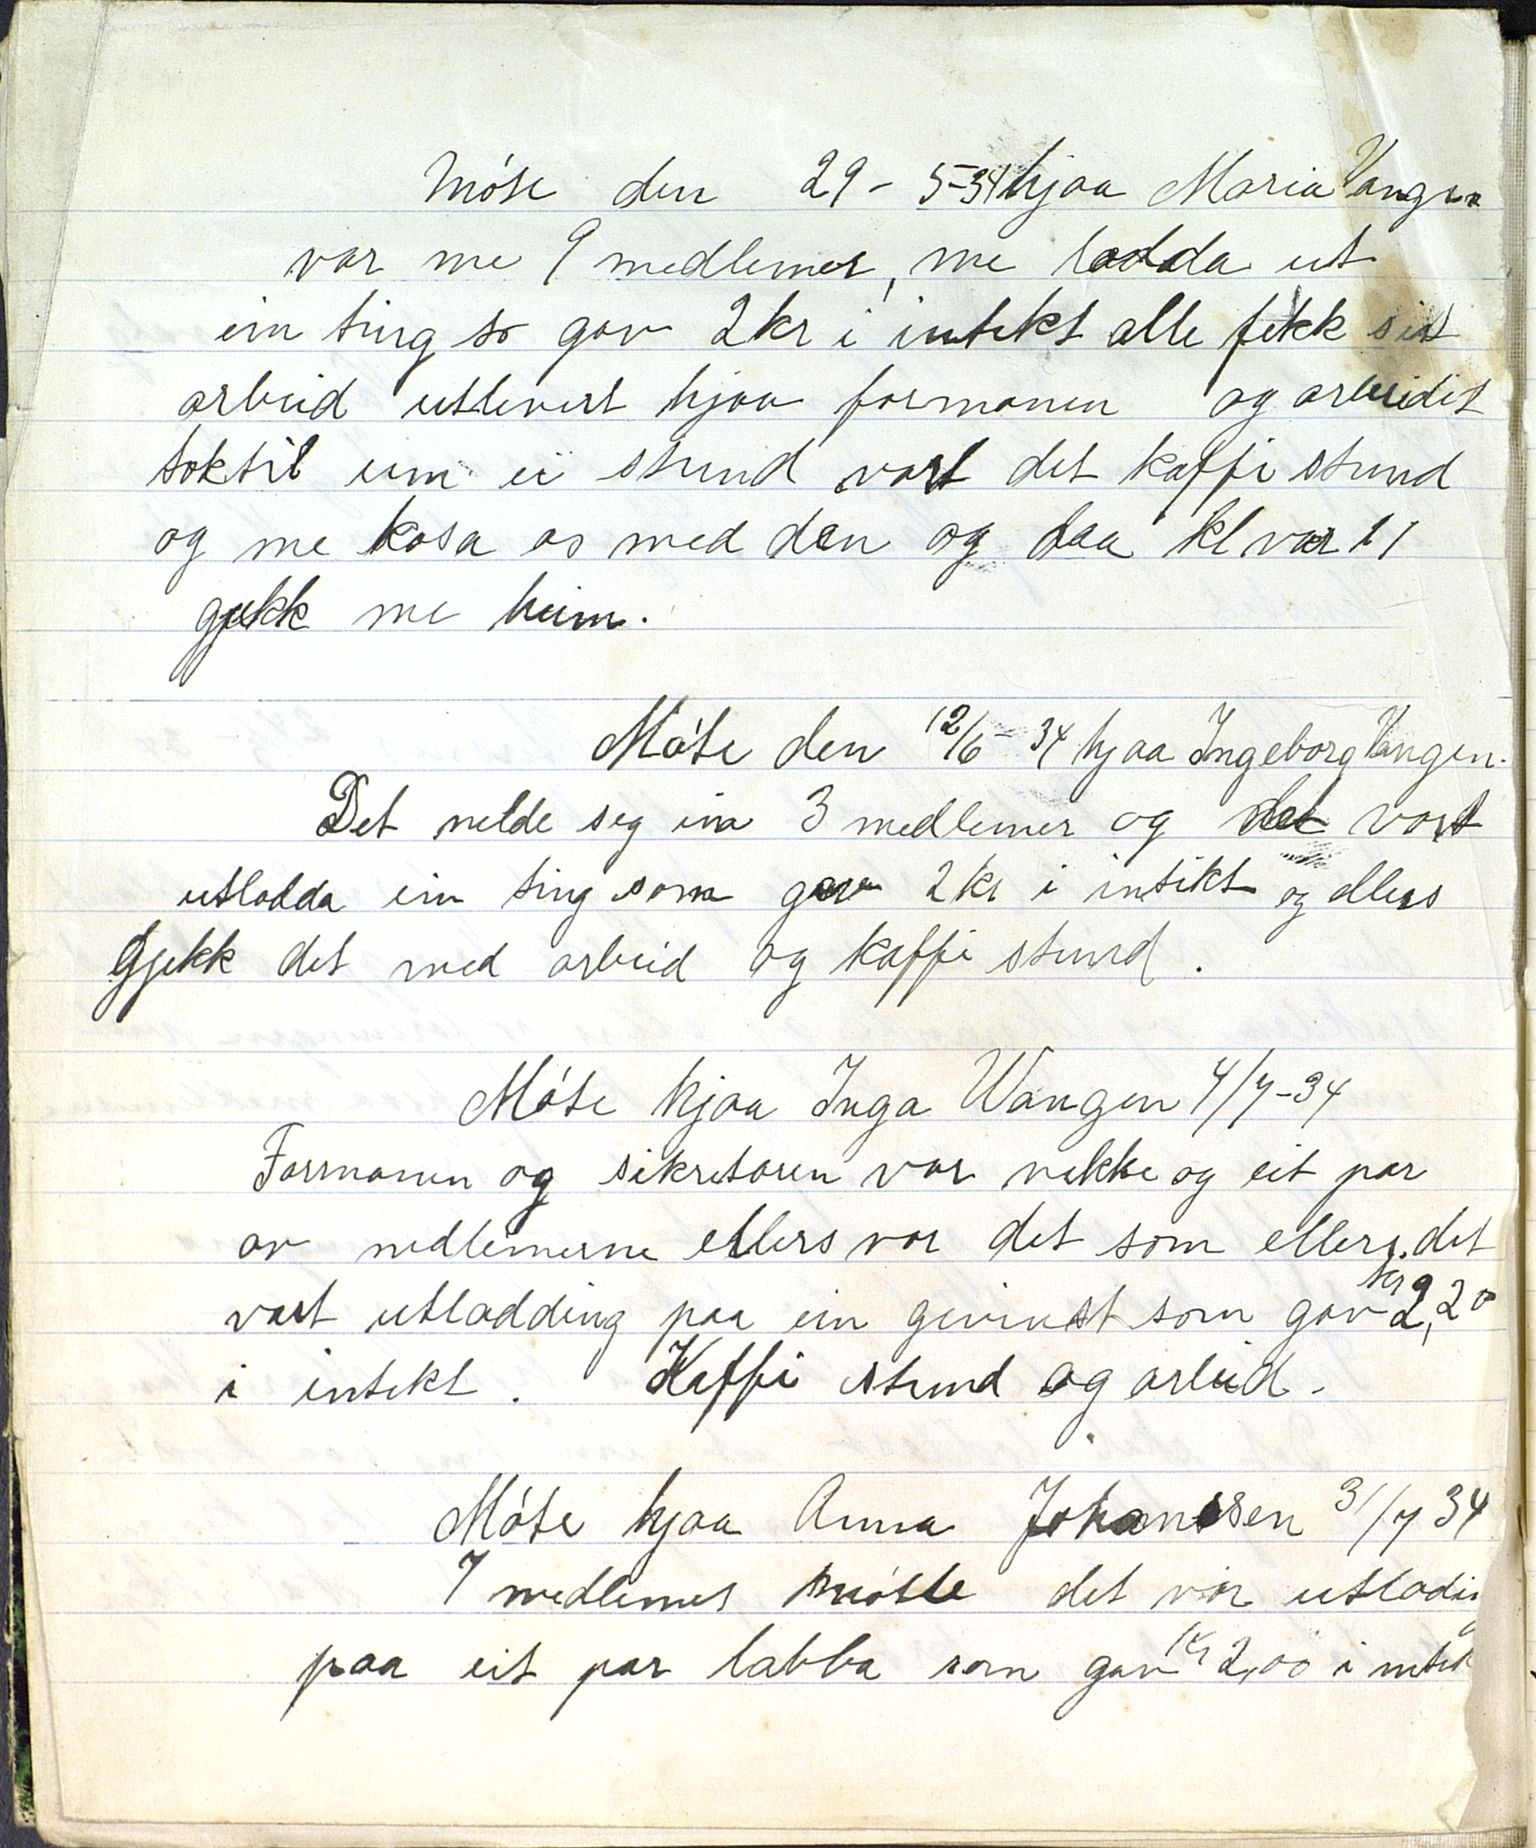 Móte den 29-5-34 hjaa Maria Vangen
var me 9 medlemer, me lodda ut
ein ting so gav 2 kr i intekt alle fekk sit
arbeid utlevert hjaa formanen og arbeidet
tok til um ei stund vart det kaffi stund
og me kosa os med den og daa kl var 11
gjekk me heim.
Móte den 12/6-34 hjaa Ingeborg Vangen.
Det melde seg inn 3 medlemer og det vart
utlodda ein ting som gav 2 kr i intekt og ellers
gjekk det med arbeid og kaffi stund.
Móte hjaa Inga Wangen 4/7-34
Formanen og sikretæren var vekke og eit par
av medlemerne ellers var det som ellers. det
vart utlodding paa ein gevinst som gav kr 2,20
i intekt. Kaffi stund og arbeid.
Móte hjaa Anna Johanssen 31/7 34
7 medlemer møtte det var utloding
paa eit par labba som gav kr 2,00 i intek